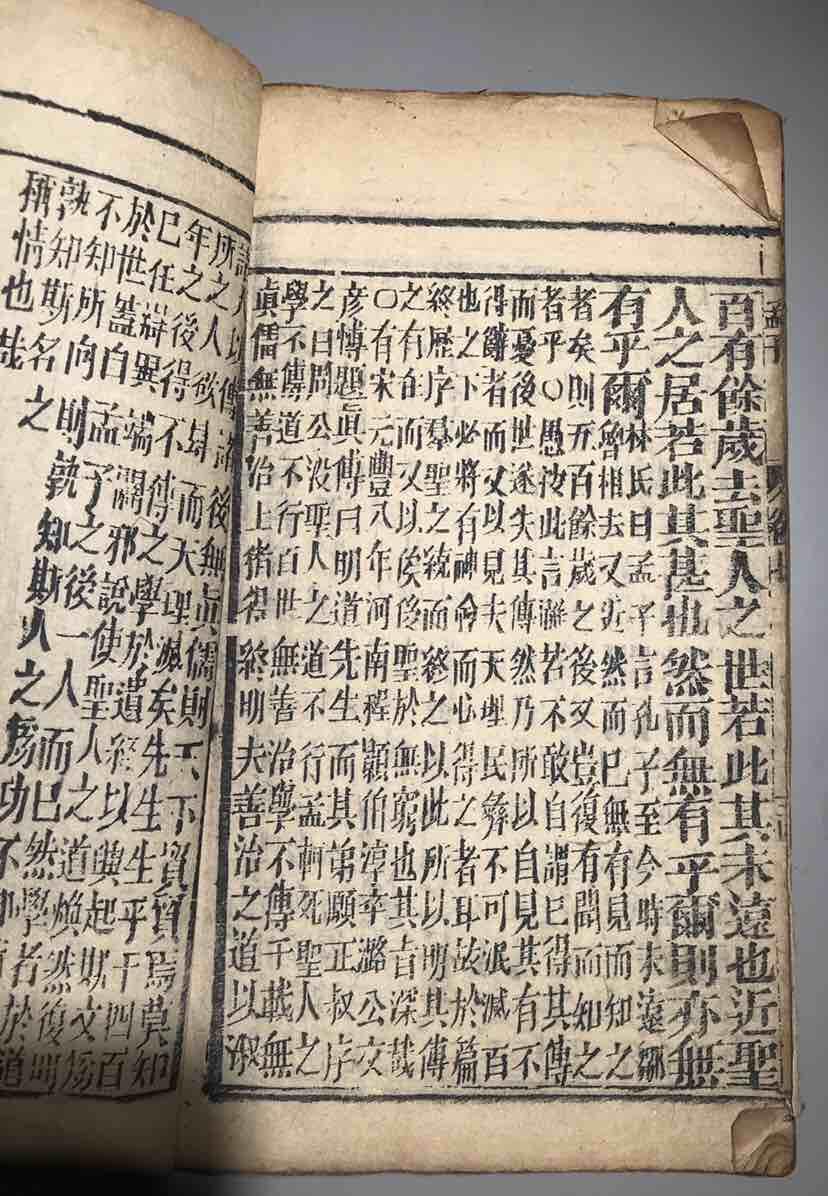 孟子
百有餘歲去聖人之世若此其未遠也近聖
人之居若此其甚也然而無有乎爾則亦無
有乎爾
林氏曰孟子言孔子至今時未遠鄒
魯相去又近然而已無有見而知之
者矣則五百餘歲之後又豈復有聞而知之
者乎○愚按此言雖若不敢自謂已得其傳
而憂後世遂失其傳然乃所以自見其有不
得辭者而又以見夫天理民彝不可泯滅百
也之下必將有神會而心得之者耳故於篇
終歷序羣聖之統而終之以此所以明其傳
之有在而又以俟後聖於無窮也其旨深哉
○有宋元豐八年河南程顥伯淳卒潞公文
彥博題眞傳曰明道先生而其弟頤正叔序
之曰周公沒聖人之道不行孟軻死聖人之
學不傳道不行百世無善治學不傳千載無
眞儒無善治上猶得終明夫善治之道以淑
諸人以傳諸後無眞儒則天下貿貿焉莫知
所之人欲肆而天理滅矣先生生乎千四百
年之後得不傳之學於遺經以興起斯文爲
已任辯異端闢邪說使聖人之道煥然復明
於世蓋自孟子之後一人而已然學者於道
不知所向則孰知斯人之爲功不
孰知斯名之
稱情也哉